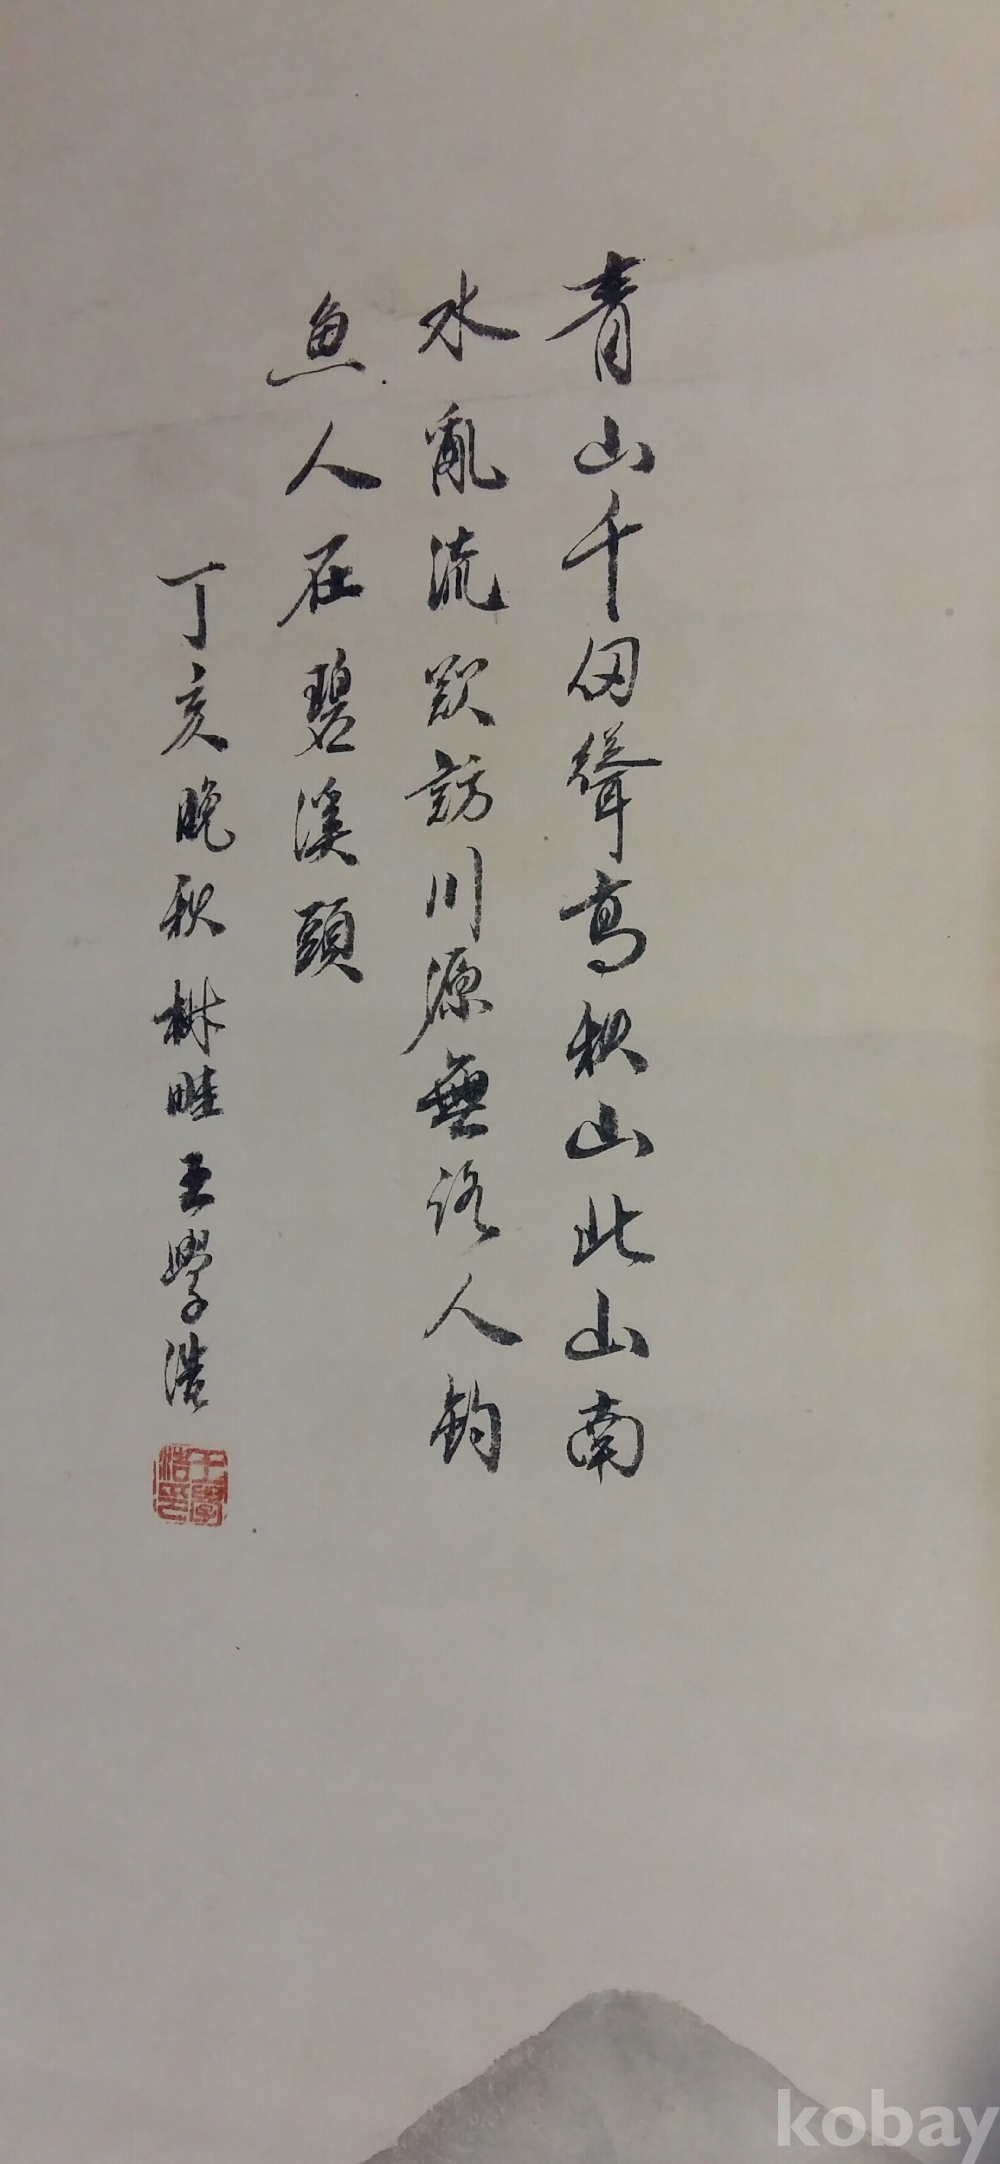 青山千仞聳高秋山北山南
水亂流欲訪川源無路入釣
魚人在碧溪頭
丁亥晚秋椒畦王學浩
王學浩印
kobay